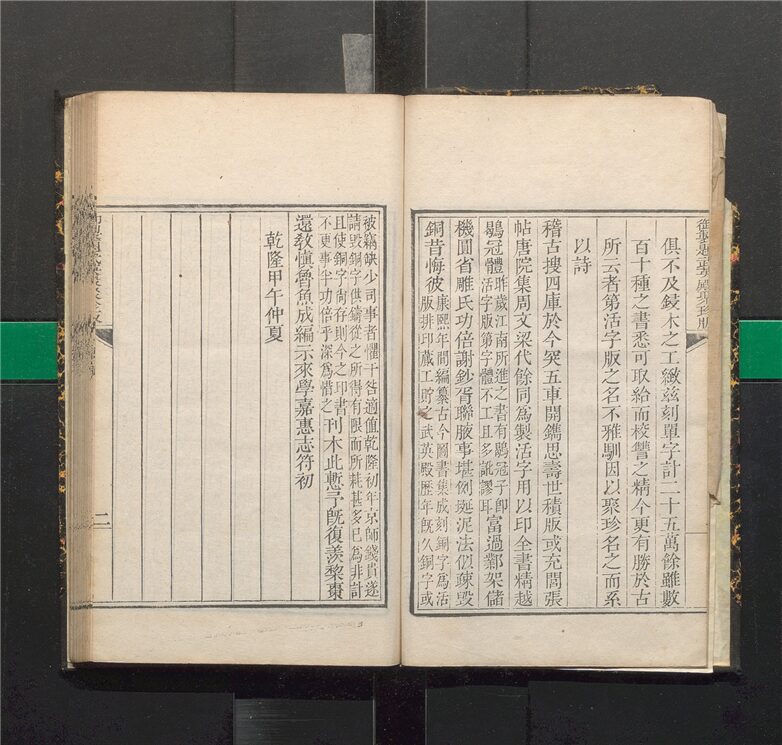 御製題武英殿聚珍版
俱不及鋟木之工緻茲刻單字計二十五萬餘雖數
百十種之書悉可取給而校讐之精今更有勝於古
所云者第活字版之名不雅馴因以聚珍名之而系
以詩
稽古搜四庫於今突五車開鐫思壽世積版或充閭張
帖唐院集周文梁代餘同為製活字用以印全書精越
鶡冠體昨歲江南所進之書有鶡冠子即
活字版第字體不工且多訛謬耳富過鄴架儲
機圓省雕氏功倍謝鈔胥聯腋事堪例埏泥法似疎毀
銅昔悔彼康熙年間編纂古今圖書集成刻銅字為活
版排印蕆工貯之武英殿歷年既久銅字或
被竊缺少司事者懼干咎適值乾隆初年京師錢貴遂
請毀銅字供鑄從之所得有限而所耗甚多已為非計
且使銅字尚存則今之印書
不更事半功倍乎深為惜之刊木此慙予既復羨梨棗
還教慎魯魚成編示來學嘉惠志符初
乾隆甲午仲夏
二